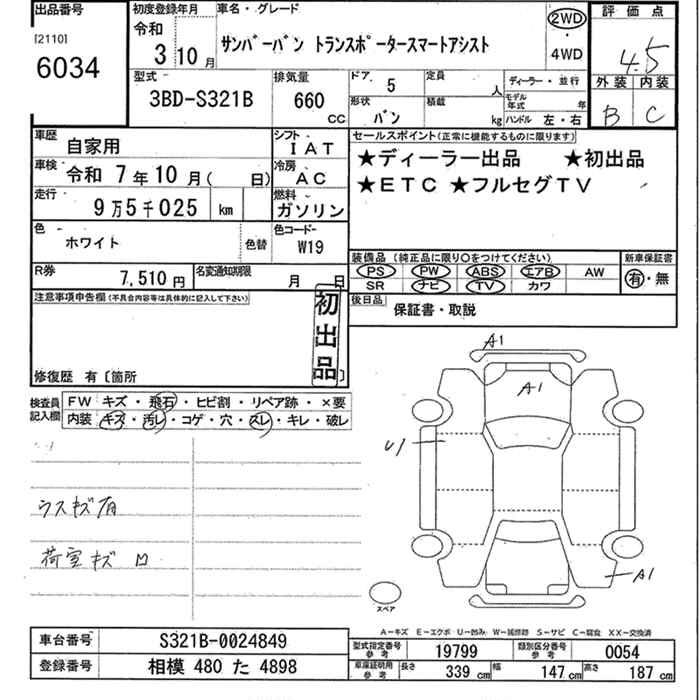 出品番号 初度登録年月 車名・グレード 2WD 評価点
[2110] 令和 サンバーバン トランスポータースマートアシスト ・ 4.5
6034 3年10月 4WD 外装 内装
B C
型式 排気量 ドア 5 定員 人 ディーラー・並行
3BD-S321B 660 CC 形状 バン 積載 kg モデル年式 年 ハンドル 左・右
車歴 自家用 シフト IAT セールスポイント(正常に機能するものに限ります)
車検 令和 7年10月( 日) 冷房 AC ★ディーラー出品 ★初出品
走行 9万5千025 km 燃料 ガソリン ★ETC ★フルセグTV
色 ホワイト 色替 色コード W19
装備品(純正品に限り○をつけてください) 新車保証書
R券 7,510円 名変通知期限 月 日 PS PW ABS エアB AW 有・無
SR ナビ TV カワ
注意事項申告欄(不具合内容等は具体的に記入して下さい) 初出品 後日品 保証書・取説
修復歴 有〔箇所
検査員記入欄 FW キズ・飛石・ヒビ割・リペア跡・×要
内装 キズ・汚レ・コゲ・穴・スレ・キレ・破レ
A1
A1
U1
ウスキズ有
荷室キズ
A1
スペア
A-キズ E-エクボ U-凹み W-補修跡 S-サビ C-腐食 XX-交換済
車台番号 S321B-0024849 型式指定番号 参考 19799 類別区分番号 参考 0054
登録番号 相模 480 た 4898 車庫証明用 参考 長さ 339 cm 幅 147 cm 高さ 187 cm